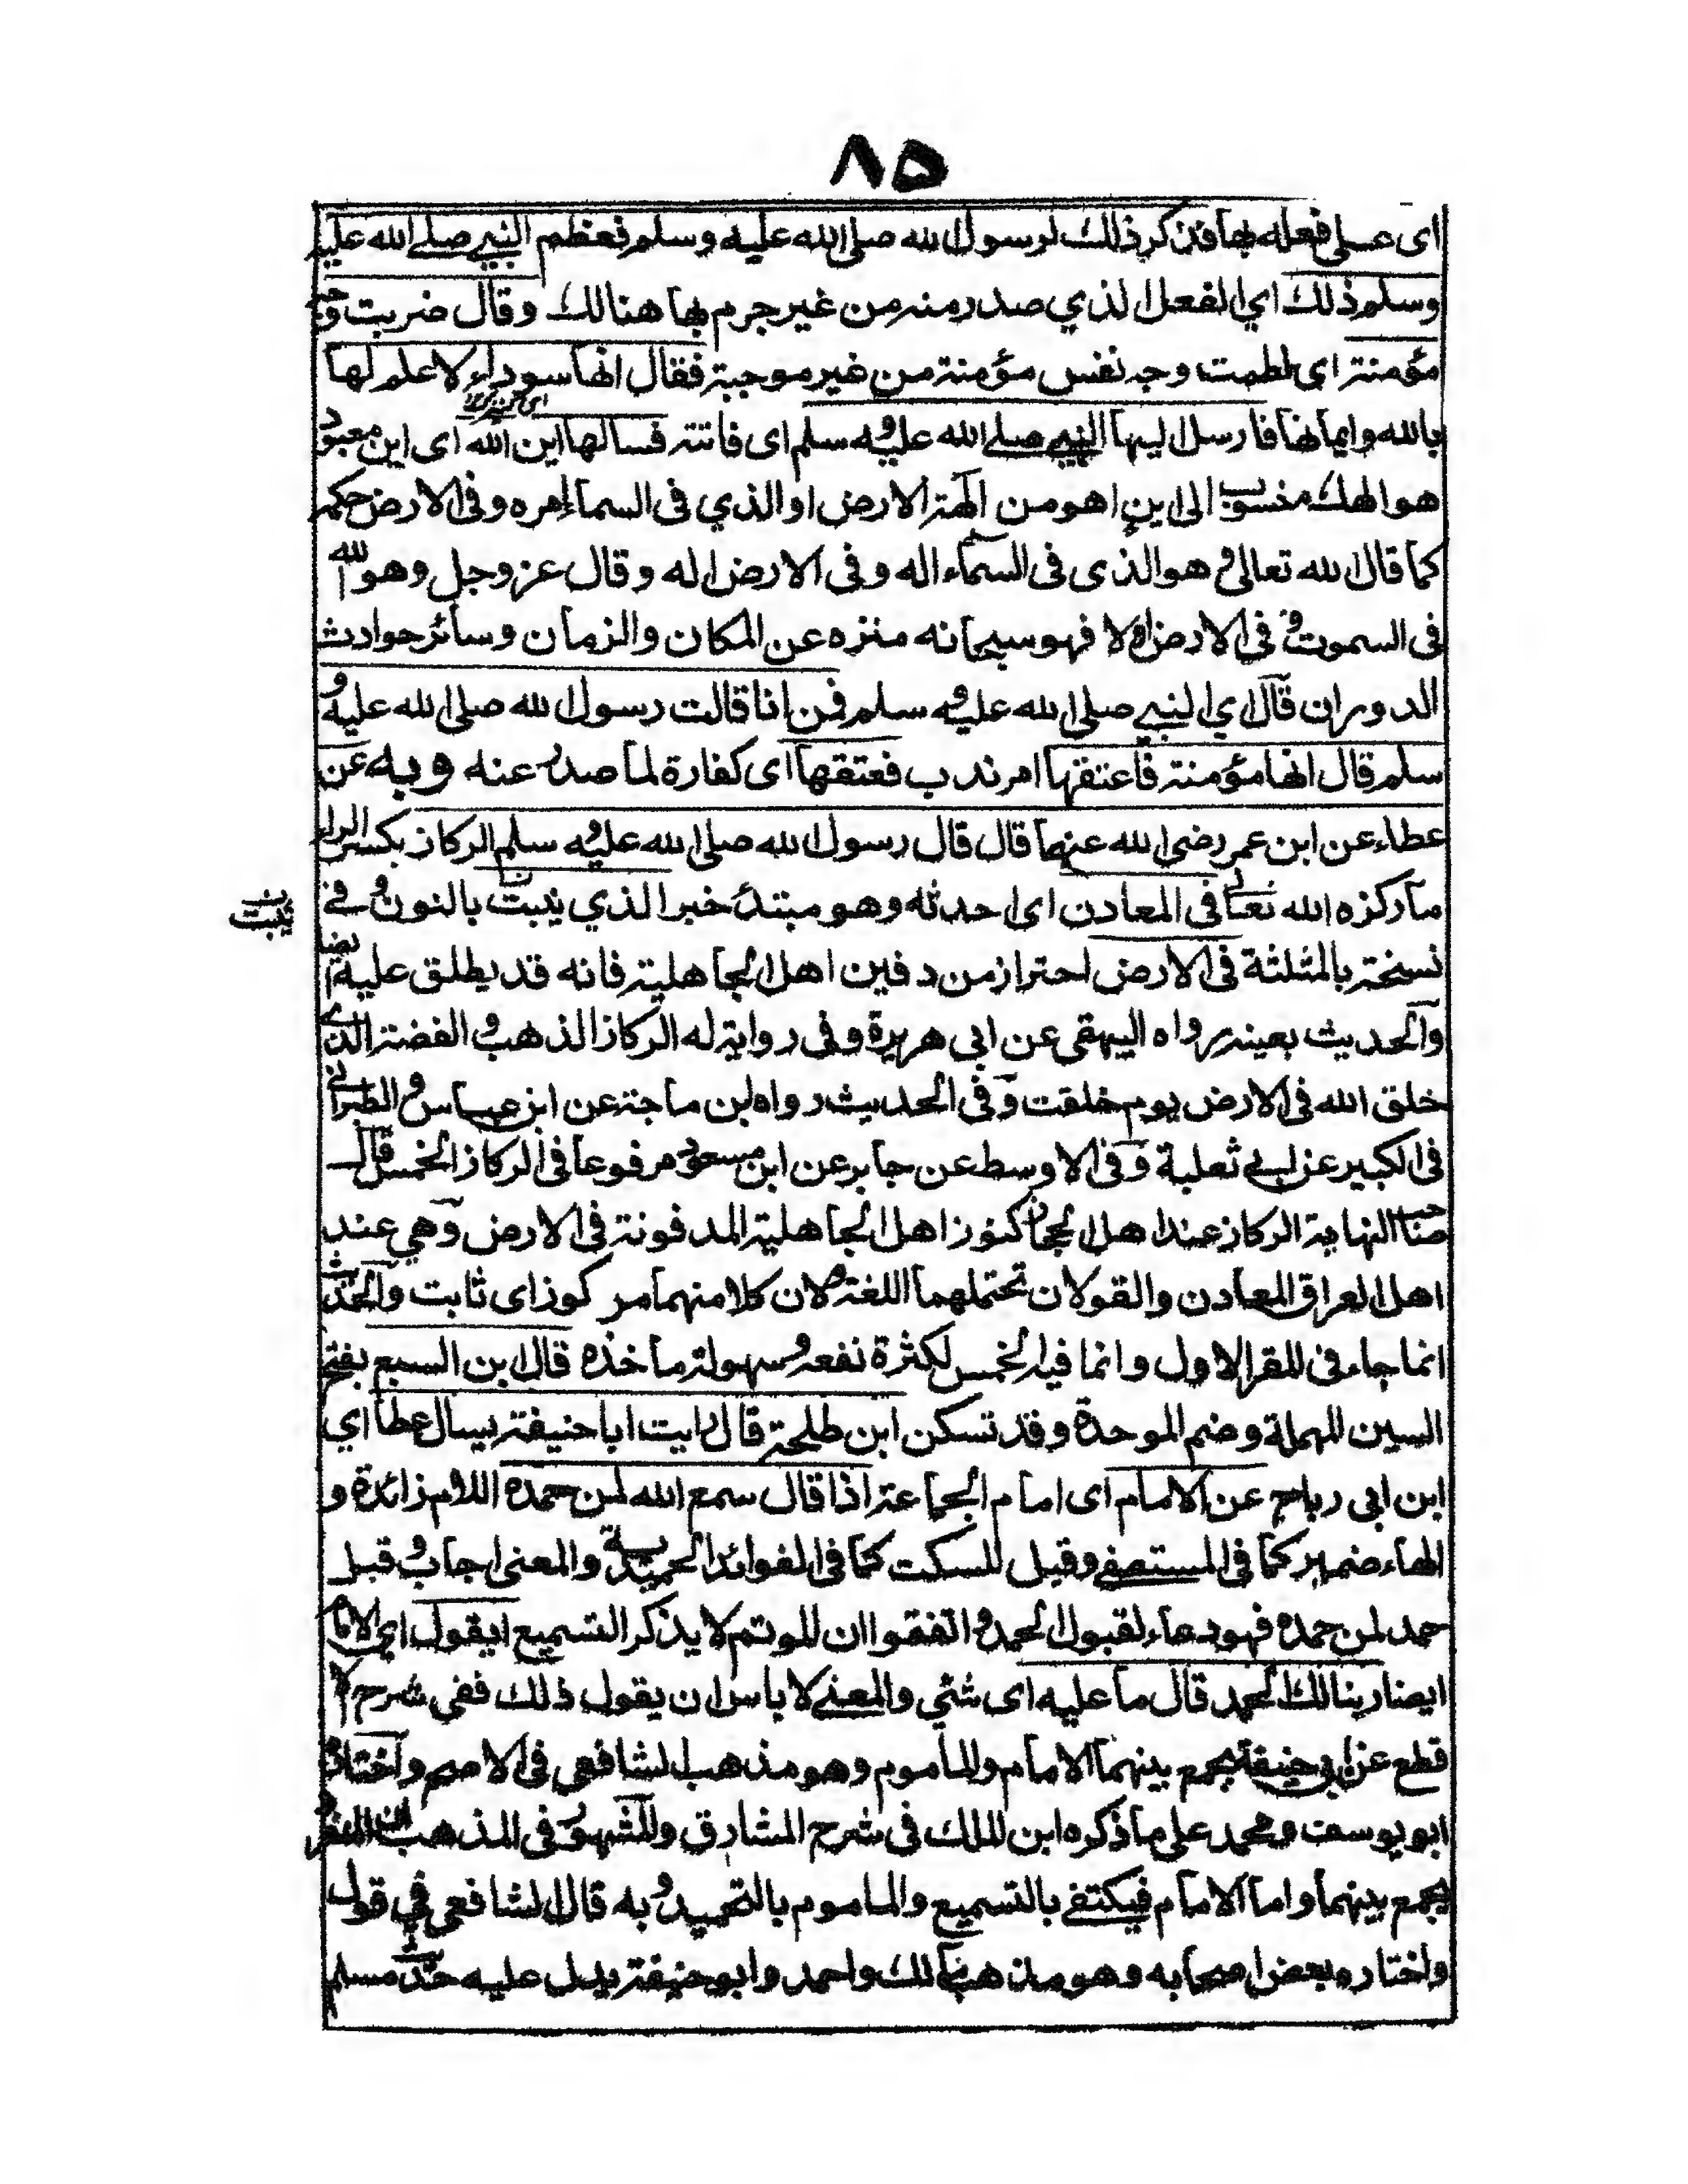 ٨٥
اى على فعله بها فذكر ذلك لرسول الله صلى الله عليه وسلم فعظم النبي صلى الله عليه
وسلم ذلك اي الفعل الذي صدر منه من غير جرم بها هنالك وقال ضربت وجه
مؤمنة اى لطمت وجه نفس مؤمنة من غير موجبة فقال انها سوداء لا علم لها
بالله وايمانها فارسل اليها النبي صلى الله عليه و سلم اى فاتته فسالها اين الله اى اين معبود
هو الهك منسوب الى اين اهو من الهة الارض او الذي فى السماء امره وفى الارض حكمه
كما قال الله تعالى و هو الذى فى السماء اله وفى الارض اله وقال عز وجل وهو الله
فى السموت و فى الارض فهو سبحانه منزه عن المكان والزمان وسائر حوادث
الدوران قال اي النبي صلى الله عليه و سلم فمن انا قالت رسول الله صلى الله عليه و
سلم قال انها مؤمنة فاعتقها امر ندب فعتقها اى كفارة لما صدر عنه وبه عن
عطاء عن ابن عمر رضى الله عنهما قال قال رسول الله صلى الله عليه و سلم الركاز بكسر الراء
ما ركزه الله تعالى فى المعادن اى احدثه وهو مبتدئ خبر الذي ينبت بالنون و في
ينبت
نسخة بالمثلثة فى الارض احتراز من دفين اهل الجاهلية فانه قد يطلق عليه ايضا
والحديث بعينه رواه البيهقى عن ابي هريرة وفى رواية له الركاز الذهب و الفضة الذي
خلق الله فى الارض يوم خلقت وفى الحديث رواه ابن ماجة عن ابن عباس و الطبراني
فى الكبير عن ابي ثعلبة وفى الاوسط عن جابر عن ابن مسعود مرفوعا فى الركاز الخمس قال
صاحب النهاية الركاز عند اهل الحجاز كنوز اهل الجاهلية المدفونة فى الارض وهي عند
اهل العراق المعادن والقولان تحتملهما اللغة لان كلا منهما مركوز اى ثابت والحديث
انما جاء فى المقر الاول وانما فيه الخمس لكثرة نفعه و سهولة ماخذه قال ابن السبع بفتح
السين المهملة وضم الموحدة وقد تسكن ابن طلحة قال رايت ابا حنيفة يسال عطا اي
ابن ابى رباح عن الامام اى امام الجماعة اذا قال سمع الله لمن حمده اللام زائدة و
الهاء ضمير كما فى المستصفى وقيل للسكت كما فى الفوائد الحميدية والمعنى اجاب و قبل
حمد لمن حمده فهو دعاء لقبول الحمد و اتفقوا ان الموتم لا يذكر التسميع ايقول اي الامام
ايضا ربنا لك الحمد قال ما عليه اى شئي والمعنى لا باس ان يقول ذلك ففي شرح الا
قطع عن ابي حنيفة يجمع بينهما الامام والماموم وهو مذهب الشافعي فى الاصح واختاره
ابو يوسف ومحمد على ما ذكره ابن الملك فى شرح المشارق والمشهور فى المذهب ان المنفرد
يجمع بينهما واما الامام فيكتفى بالتسميع والماموم بالتحميد و به قال الشافعى في قول
واختاره بعض اصحابه وهو مذهب مالك واحمد وابو حنيفة يدل عليه حديث مسلم